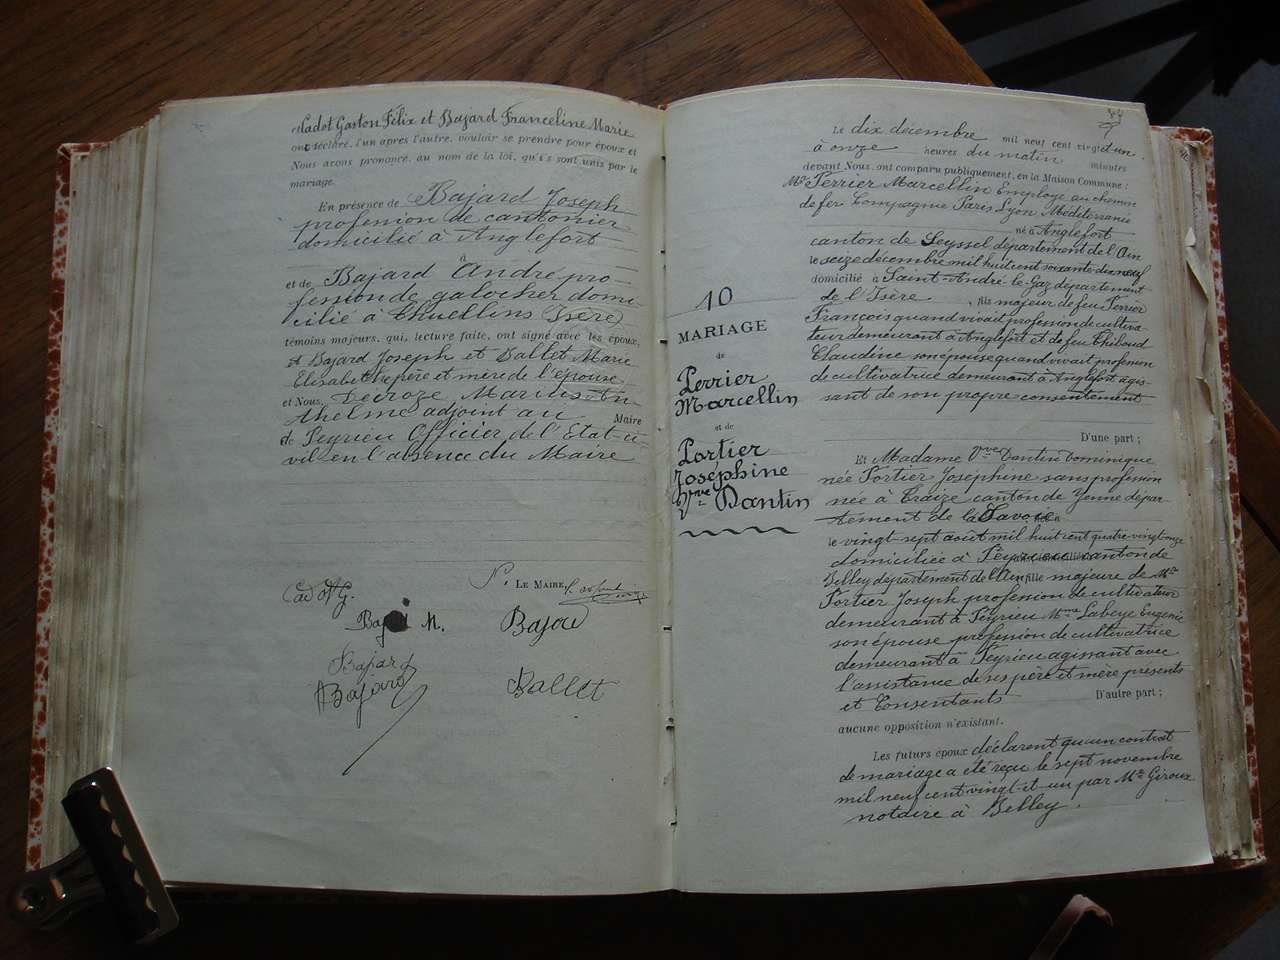 Cadot Gaston Félix et Bajard Franceline Marie
ont déclaré, l'un après l'autre, vouloir se prendre pour époux et
Nous avons prononcé, au nom de la loi, qu'i's sont unis par le
mariage.
En présence de Bajard Joseph
profession de cantonnier
domicilié à Anglefort
et de Bajard André pro-
fession de galocher domi-
cilié à Thuellins (Isère)
témoins majeurs, qui, lecture faite, ont signé avec les époux,
et Bajard Joseph et Ballet Marie
Elisabeth père et mère de l'épouse
et Nous, Decroze Marius An-
thelme adjoint au Maire
de Peyrieu Officier de l'Etat-ci-
vil en l'absence du Maire
P. LE MAIRE,
Cadot G.
Bajard M. Bajard
Bajard
ABajard Ballet
10
MARIAGE
de
Perrier
Marcellin
et de
Portier
Joséphine
Vve Dantin
Le dix décembre mil neuf cent vingt et un
à onze heures du matin minutes
devant Nous ont comparu publiquement, en la Maison Commune :
Mr Perrier Marcellin Employé au chemin
de fer Compagnie Paris Lyon Méditerranée
né à Anglefort
canton de Seyssel département de l'Ain
le seize décembre mil huit cent soixante dix neuf
domicilié à Saint-André-le-Gaz département
de l'Isère, fils majeur de feu Perrier
François quand vivait profession de cultiva-
teur demeurant à Anglefort et de feu Thiboud
Claudine son épouse quand vivait profession
de cultivatrice demeurant à Anglefort agis-
sant de son propre consentement
D'une part ;
Et Madame Vve Dantin Dominique
née Portier Joséphine sans profession
née à Traize canton de Yenne dépar-
tement de la Savoie
le vingt-sept août mil huit cent quatre-vingt-onze
domiciliée à Peyrieu canton de
Belley département de l'Ain fille majeure de Mr
Portier Joseph profession de cultivateur
demeurant à Peyrieu Mme Labeye Eugénie
son épouse profession de cultivatrice
demeurant à Peyrieu agissant avec
l'assistance de ses père et mère présents
et Consentants D'autre part ;
aucune opposition n'existant.
Les futurs époux déclarent qu'un contrat
de mariage a été reçu le sept novembre
mil neuf cent vingt-et-un par Me Giroux
notaire à Belley.